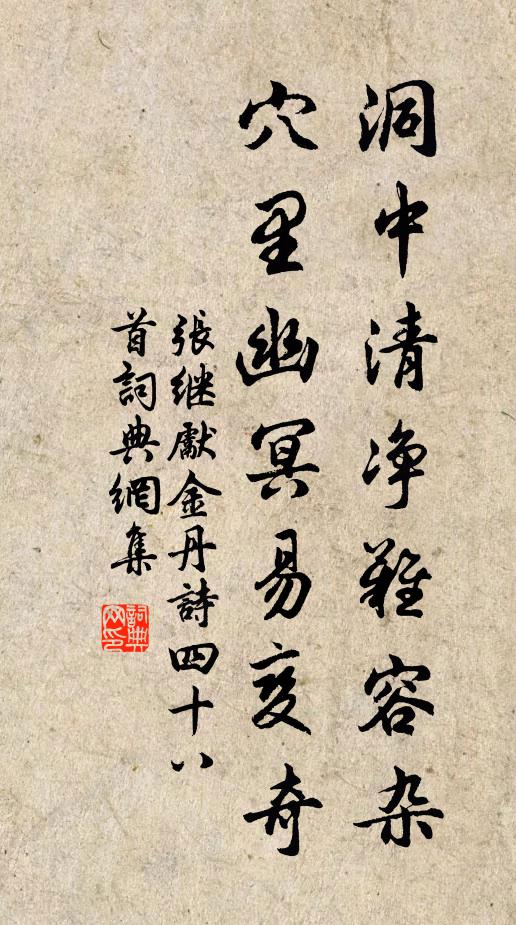 洞中清净難容杂
穴里幽冥易变奇
張继獻金丹詩四十八
首詞典網集
詞典
网印